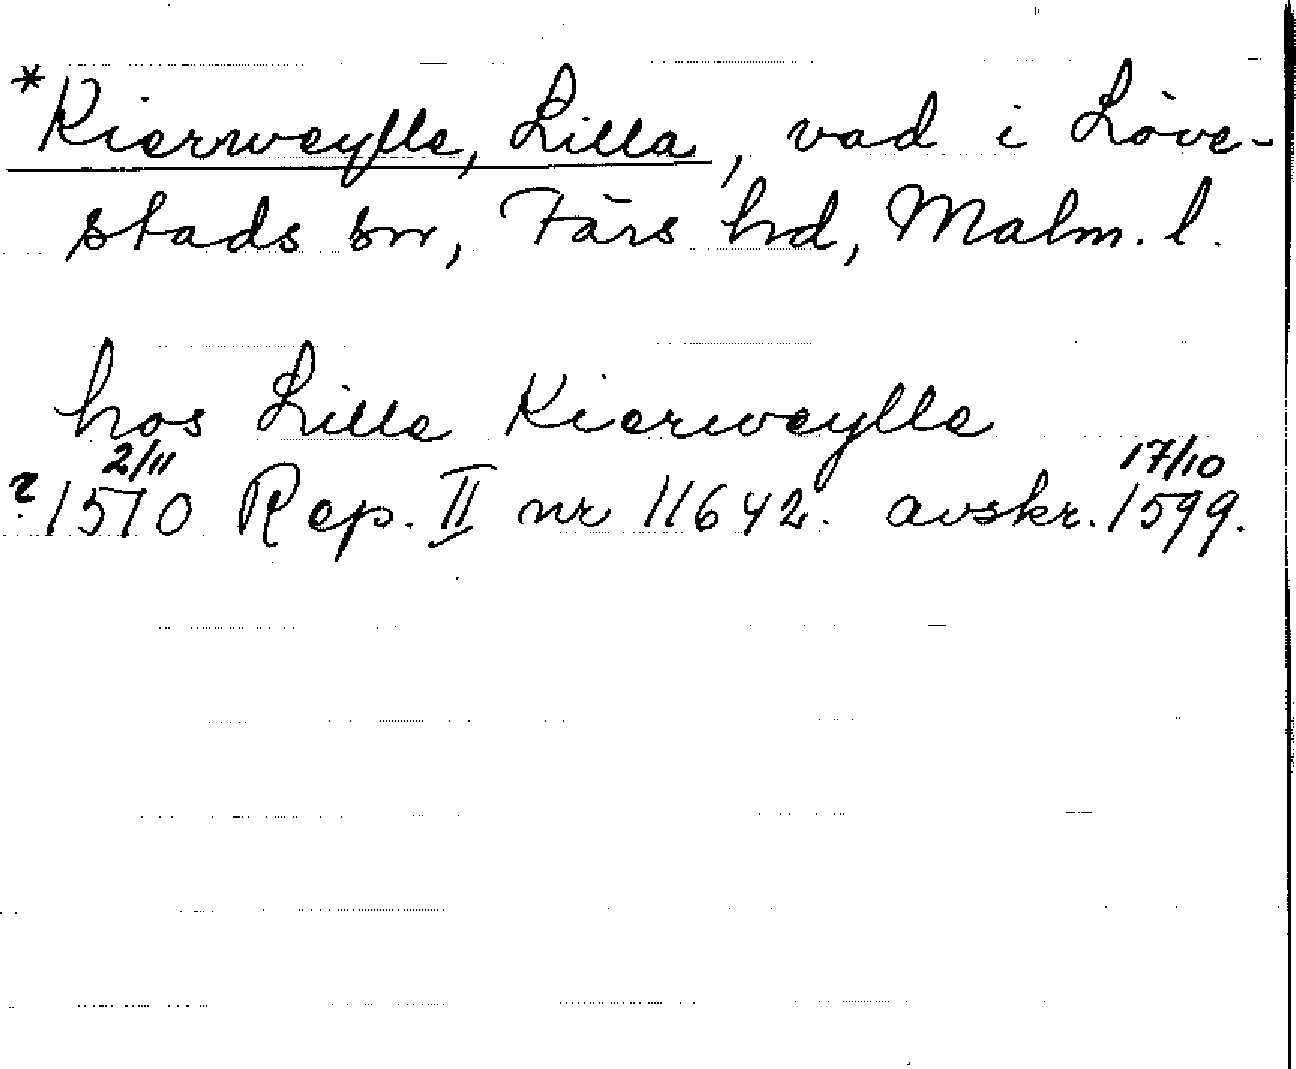 *Kierweylle, Lilla, vad i Löve-
stads sn, Färs hd, Malm. l.
hos Lille Kierweylle
2/11 17/10
? 1510 Rep. II nr 11642. avskr. 1599.